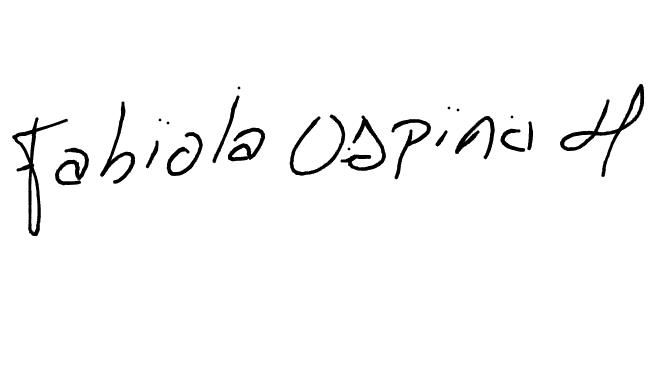 Fabiola Ospina H